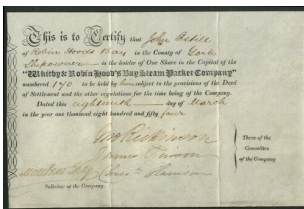 This is to Certify that John Estill
of Robin Hoods Bay in the County of York
Shipowner is the holder of One Share in the Capital of the
"Whitby & Robin Hood's Bay Steam Packet Company"
numbered 170 to be held by him subject to the provisions of the Deed
of Settlement and the other regulations for the time being of the Company.
Dated this eighteenth day of March
in the year one thousand eight hundred and fifty four
Three of the
Committee
of the Company
Harrison
Solicitor of the Company.